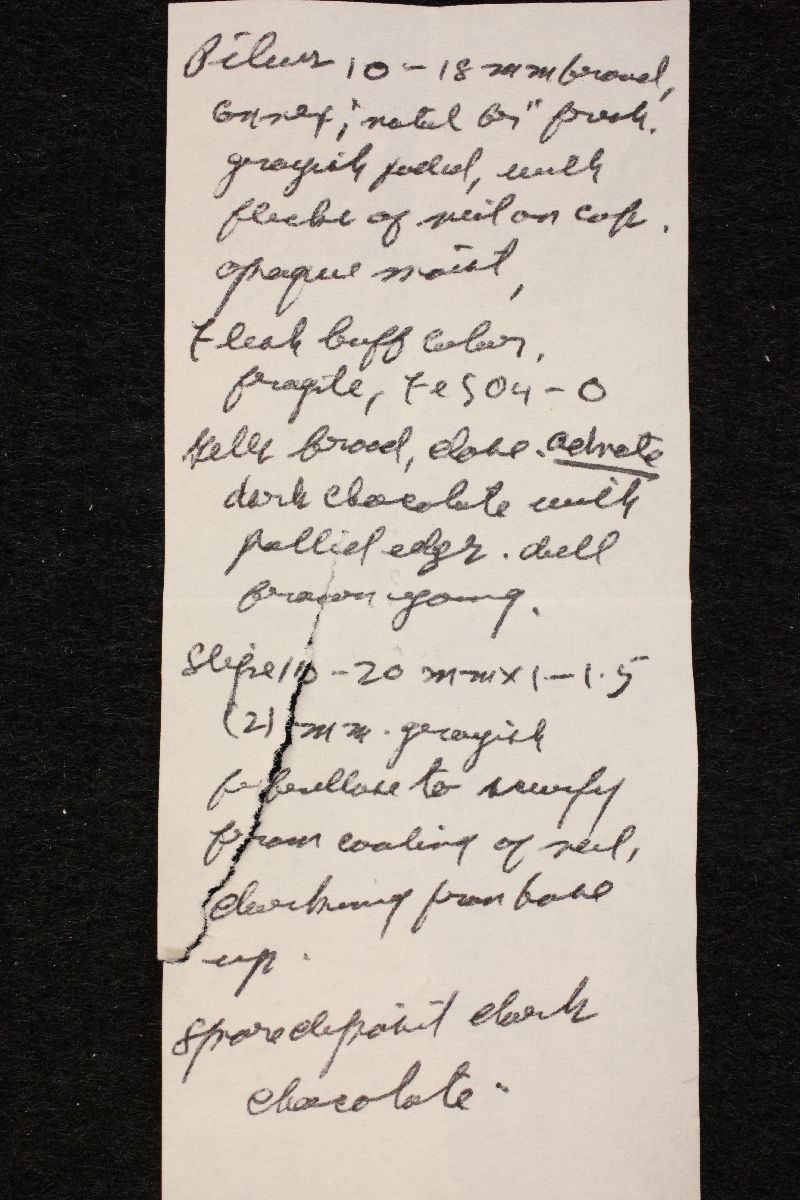 Pileus 10 - 18 mm broad,
convex, "natal bs" fresh.
grayish faded, with
flecks of veil on cap.
opaque moist,
Flesh buff color,
fragile, FeSO4 - 0
Gills broad, close. adnate
dark chocolate with
pallid edge. dull
brown young.
Stipe 10 - 20 mm x 1 - 1.5
(2) mm. grayish
fibrillose to scurfy
from coating of veil,
darkening from base
up.
Spore deposit dark
chocolate.